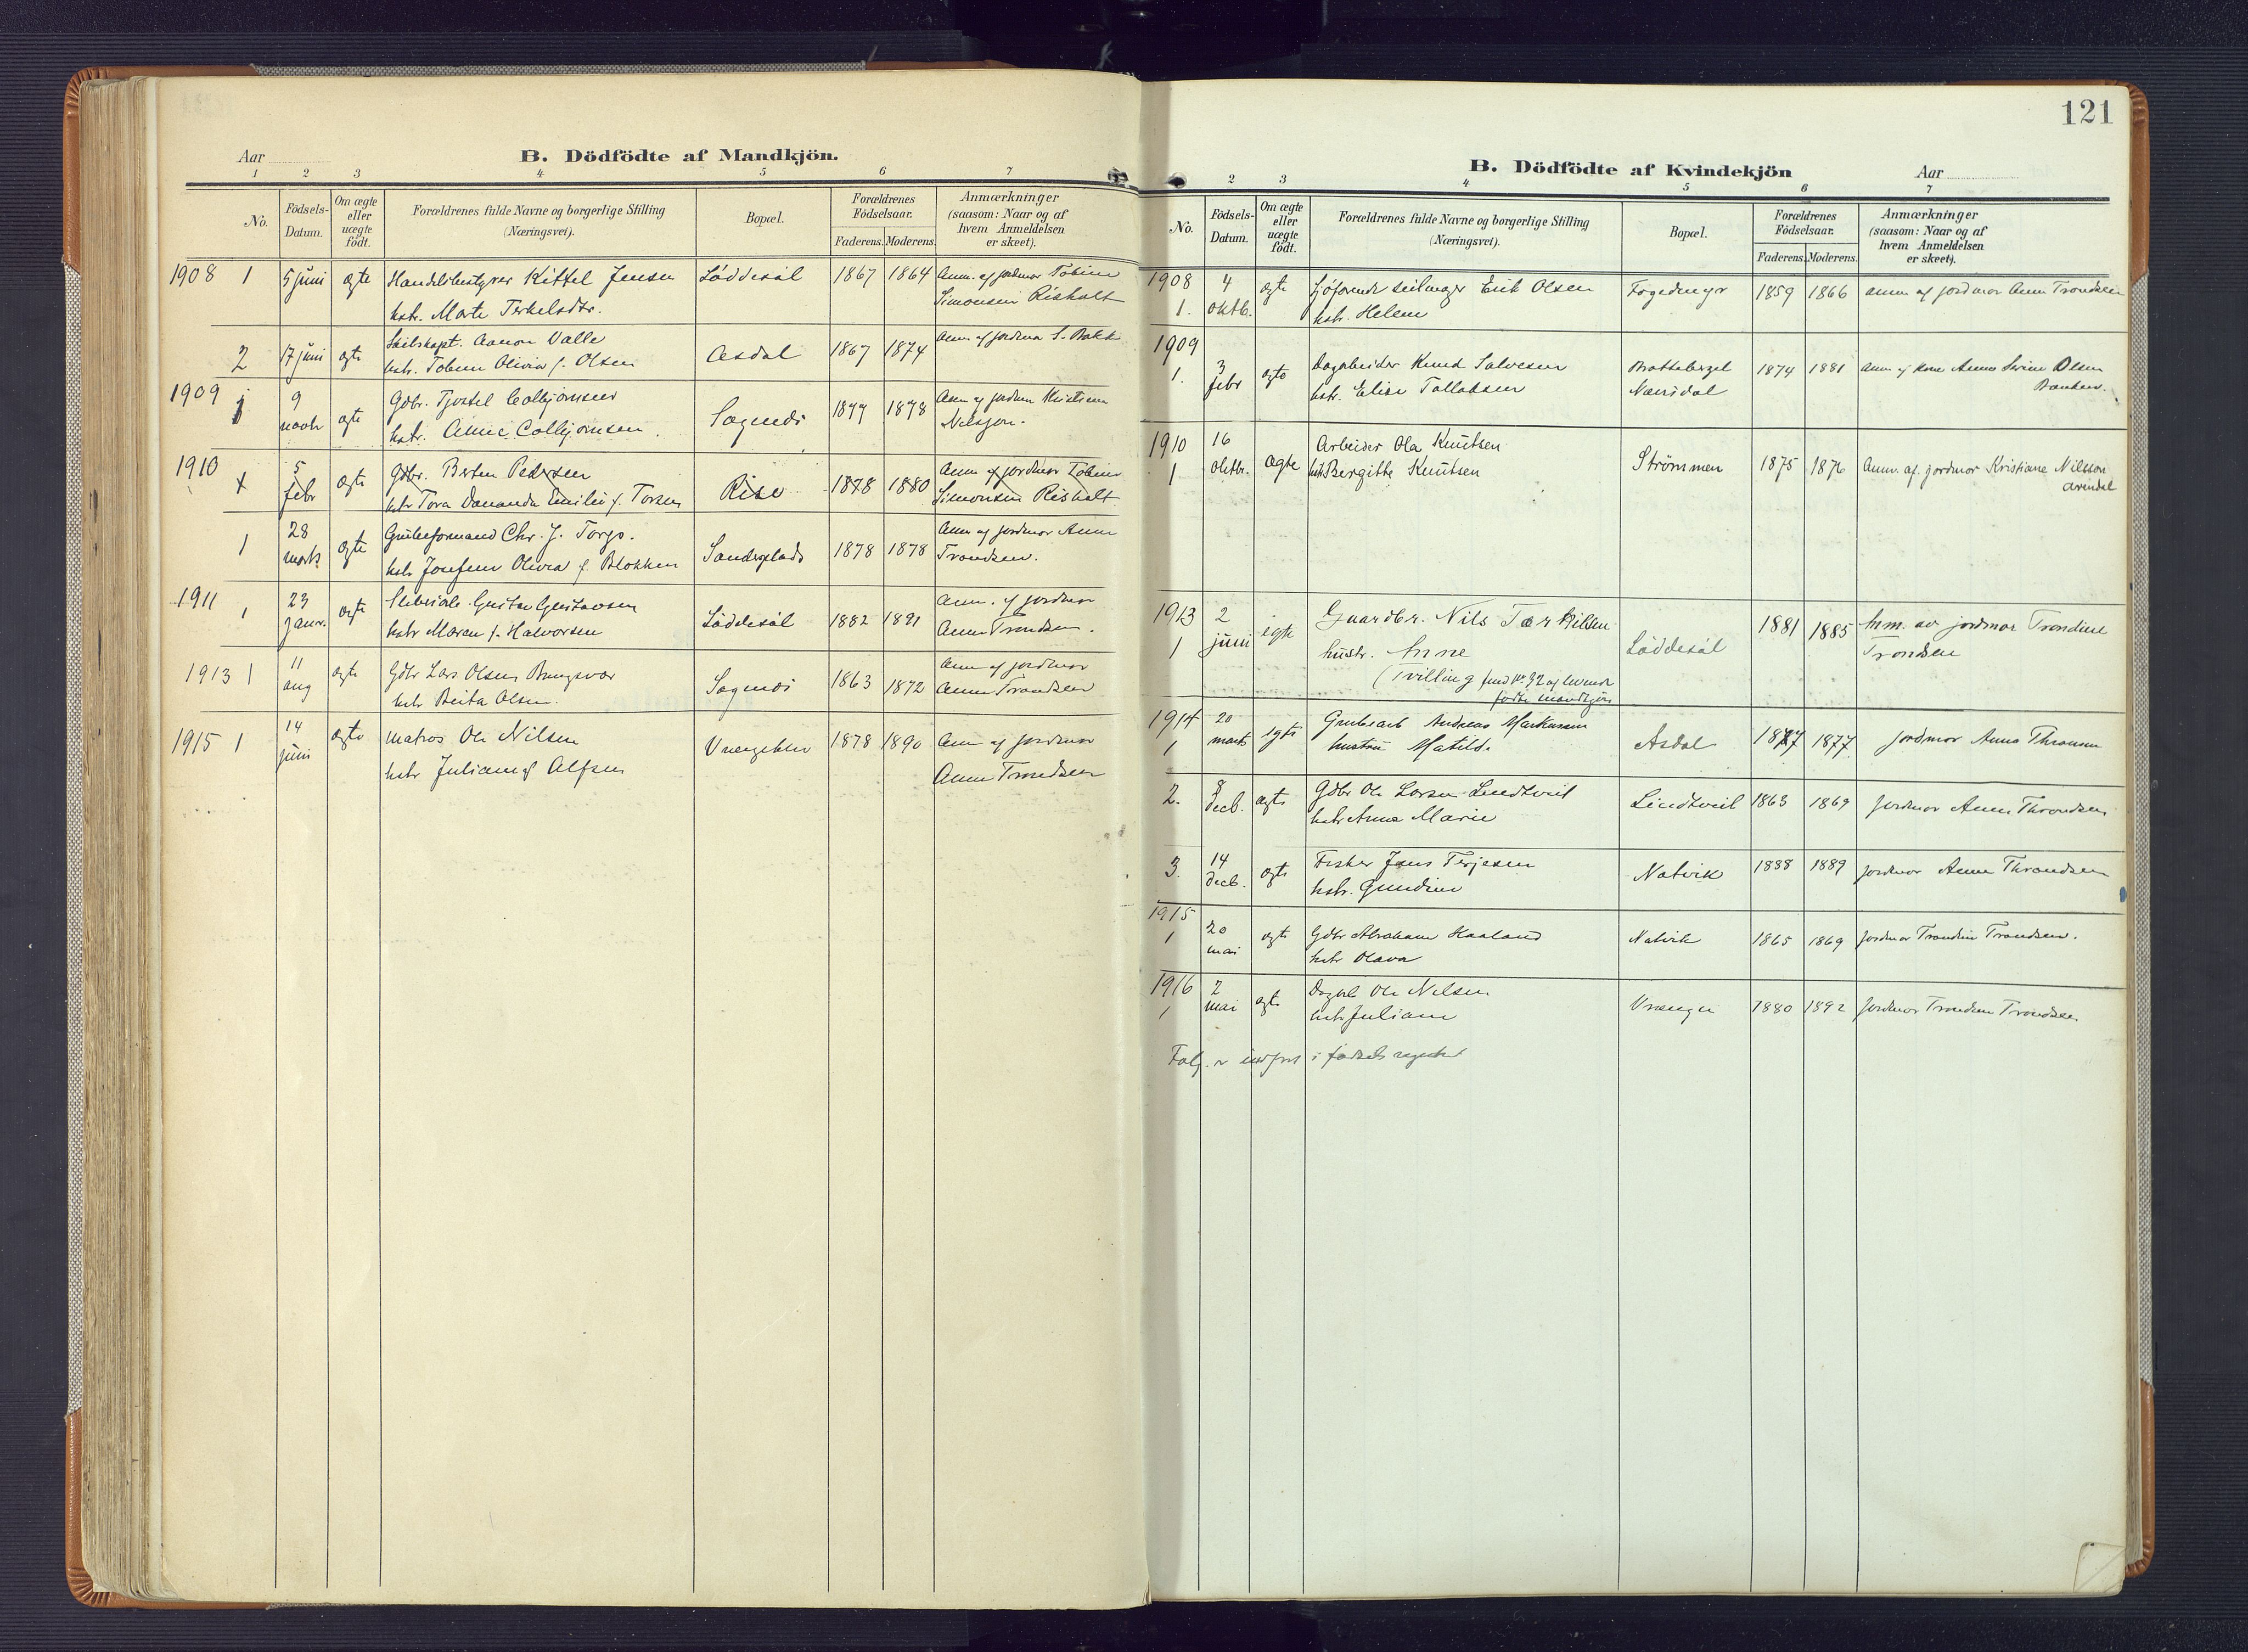 Aar
B. Dödfödte af Mandkjön.
1 2 3 4 5 6 7
No.
Födsels-
Datum.
Om ægte
eller
uægte
födt.
Forældrenes fulde Navne og borgerlige Stilling
(Næringsvei).
Bopæl.
Forældrenes
Födselsaar.
Faderens. Moderens.
Anmærkninger
(saasom: Naar og af
hvem Anmeldelsen
er skeet).
1908 1 5 juni ægte Handelsbestyrer Kittel Jensen Löddesöl 1867 1864 Anm. af jordmor Tobine
hstr. Marte Terkelsdtr. Simonsen Risholt
2 17 juni ægte Skibskapt. Aanon Valle Asdal 1867 1874 Anm af jordmor S. Bakke
hstr. Tobine Olivia f. Olsen
1909 1 9 novb ægte Gdbr. Tjostel Colbjörnsen Sagene 1877 1878 Anm af jordmor Kristiane
hstr. Anne Colbjörnsen. Nilsson.
1910 1 5 febr ægte Gdbr. Berten Pedersen Rise 1878 1880 Anm af jordmor Tobine
hstr Tora Emilie f. Torsen Simonsen Risholt
1 28 marts ægte Grubeformand Chr. J. Torgo. Sandeplads 1878 1878 Anm af jordmor Anne
hstr Josefine Olivia f. Blokken Trondsen.
1911 1 23 janr. ægte Gustav Gustavsen Löddesöl 1882 1891 Anm. af jordmor
hstr Maren f. Halvorsen Anne Trondsen.
1913 1 11 aug ægte Gdbr Lars Olsen 1863 1872 Anm af jordmor
hstr Berta Olsen. Anne Trondsen
1915 1 14 juni ægte Matros Ole Nilsen 1878 1890 Anm af jordmor
hstr Juliane f Alfsen Anne Trondsen
121
B. Dödfödte af Kvindekjön
Aar
2 3 4 5 6 7
No.
Födsels-
Datum.
Om ægte
eller
uægte
födt.
Forældrenes fulde Navne og borgerlige Stilling
(Næringsvei).
Bopæl.
Forældrenes
Födselsaar.
Faderens. Moderens.
Anmærkninger
(saasom: Naar og af
hvem Anmeldelsen
er skeet).
1908 4 ægte Sjöfarende seilmager Erik Olsen Fogedmyr 1859 1866 anm af jordmor Anne Trondsen
1. oktb. hstr. Helene
1909
1. 3 febr ægte Dagarbeider Knud Salvesen 1874 1881 anm af kone Anne Serine Olsen
hstr. Elise Tallaksen Næsdal
1910 16 Arbeider Ola Knutsen
1 oktbr. Ægte hst Bergitte Knutsen Strömmen 1875 1876 Anm. af. jordmor Kristiane Nilsson
Arendal
1913 2 egte Gaardbr. Nils Tærkilsen 1881 1885 Anm. av jordmor Trondine
1 juni hustr. Anne Löddesöl Trondsen
(Tvilling med No 92 af levende
födte mandkjön
1914 20 egte Grubearb Andreas Markussen 1877 1877 jordmor Anna Thronsen
1 marts hustru Matilde Asdal
2. 8 decb. ægte Gdbr Ole Larsen Lindtveit Lindtveit 1863 1869 jordmor Anne Throndsen
hstr Anna Marie
3. 14 decb. ægte Fisker Jens Terjesen Natvik 1888 1889 jordmor Anne Throndsen
hstr. Gundine
1915
1 20 mai ægte Gdbr Abraham Haaland Natvik 1865 1869 jordmor Trondine Trondsen.
hstr Olava
1916 2 ægte Dagarb Ole Nilsen
1 mai hstr Juliane Vrænge 1880 1892 jordmor Trondine Trondsen
i födsels